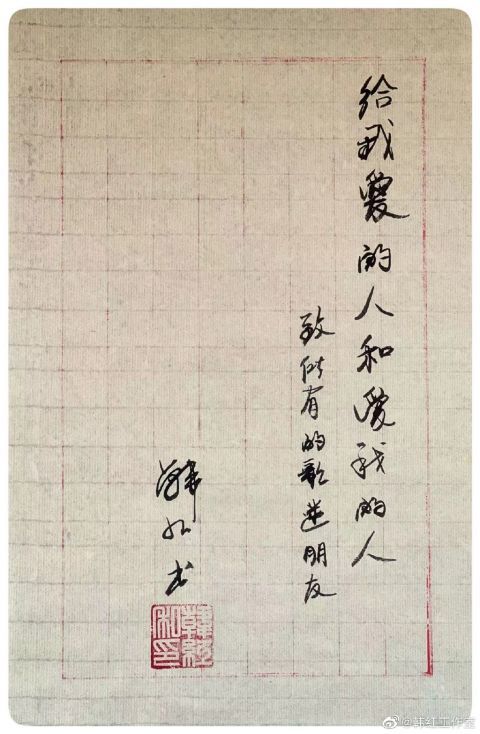 给我愛的人和爱我的人
致所有的歌迷朋友
韩红书
韓紅私印
@韩红工作室